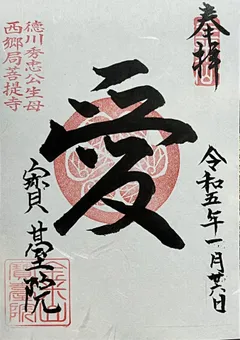 奉拝
令和五年一月廿六日
愛
徳川秀忠公生母
西郷局菩提寺
寳臺院